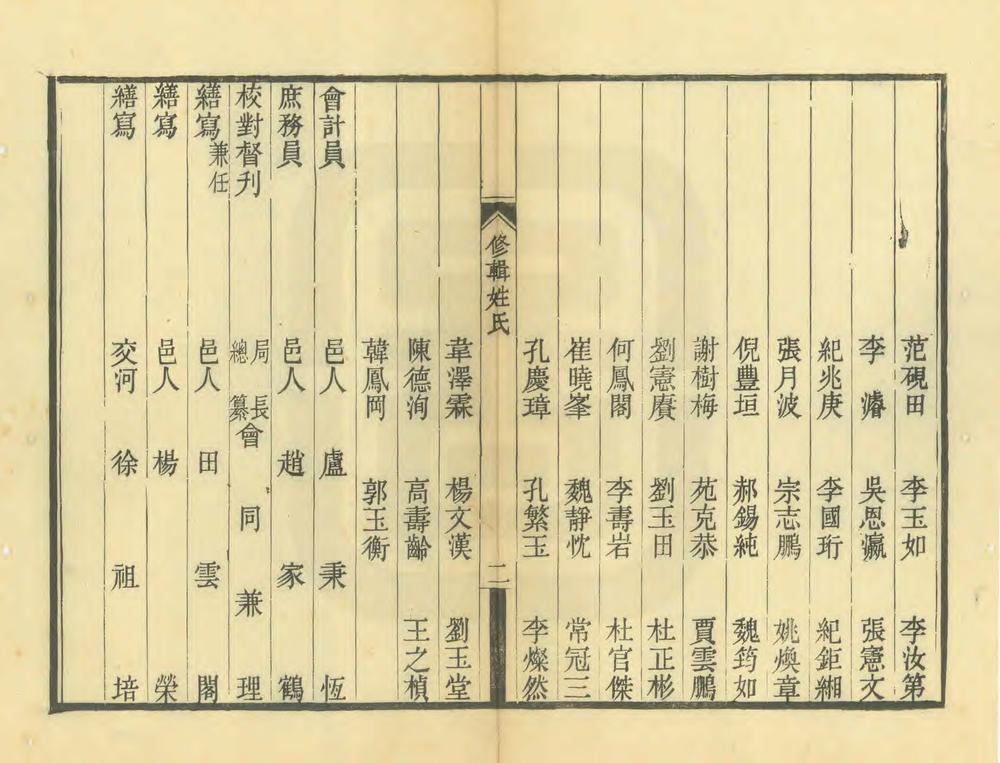 范硯田 李玉如 李汝第
李濬 吳恩瀛 張憲文
紀兆庚 李國珩 紀鉅緗
張月波 宗志鵬 姚煥章
倪豐垣 郝錫純 魏筠如
謝樹梅 苑克恭 賈雲鵬
劉憲賡 劉玉田 杜正彬
何鳳閣 李壽岩 杜官傑
崔曉峯 魏靜忱 常冠三
孔慶璋 孔繁玉 李燦然
修輯姓氏 二
韋澤霖 楊文漢 劉玉堂
陳德洵 高壽齡 王之楨
韓鳳岡 郭玉衡
會計員 邑人 盧秉恆
庶務員 邑人 趙家鶴
校對督刊 局長總纂會同兼理
繕寫兼任 邑人 田雲閣
繕寫 邑人 楊榮
繕寫 交河 徐祖培